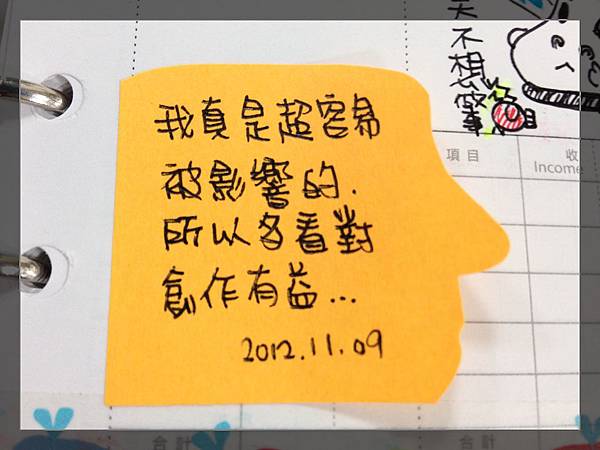 我真是超容易
被影響的.
所以多看對
創作有益...
2012.11.09
天不想做事
項目
收
Income
合計
合計